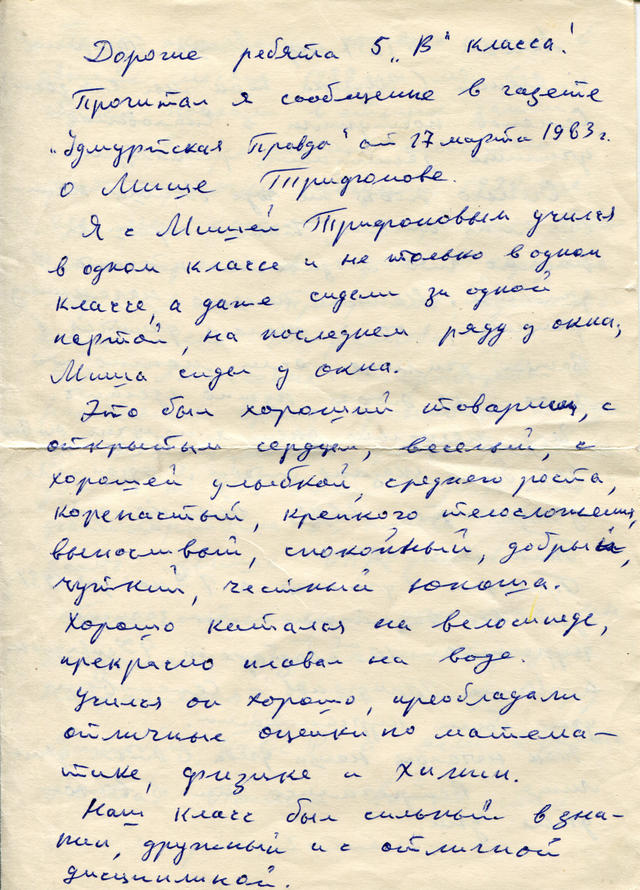 Дорогие ребята 5 „В" класса!
Прочитал я сообщение в газете
„Удмуртская Правда" от 17 марта 1983 г.
о Мише Трифонове.
Я с Мишей Трифоновым учился
в одном классе и не только в одном
классе, а даже сидели за одной
партой, на последнем ряду у окна,
Миша сидел у окна.
Это был хороший товарищ, с
открытым сердцем, веселый, с
хорошей улыбкой, среднего роста,
корепастый, крепкого телосложения,
выносливый, спокойный, добрый,
чуткий, честный юноша.
Хорошо катался на велосипеде,
прекрасно плавал на воде.
Учился он хорошо, преобладали
отличные оценки по матема-
тике, физике и химии.
Наш класс был сильный в зна-
нии, дружный и с отличной
дисциплиной.